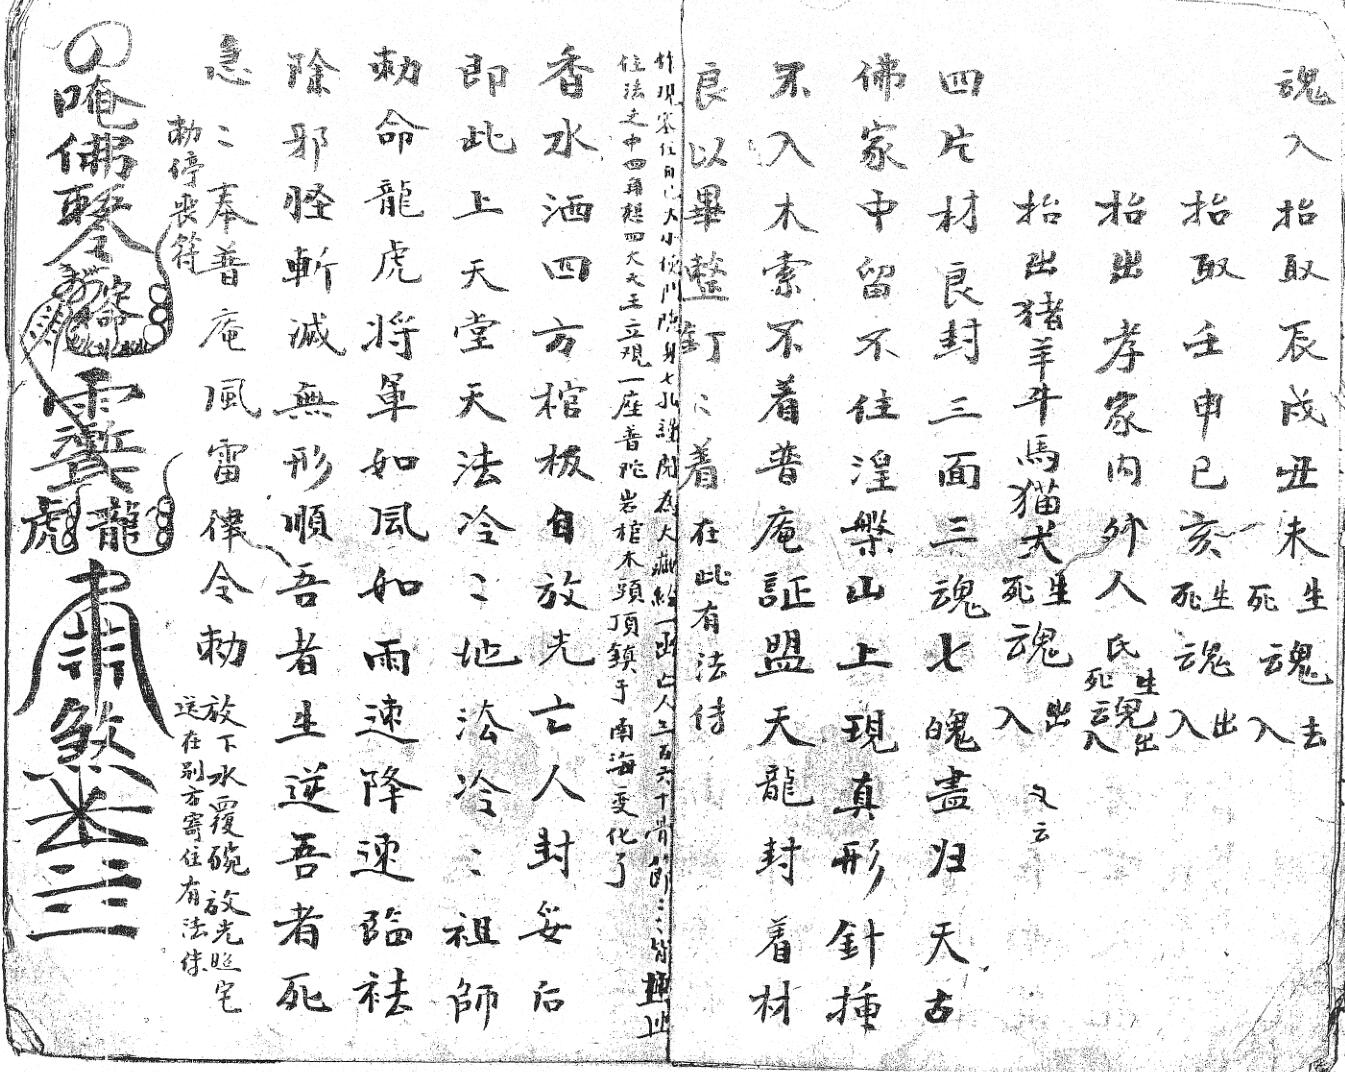 魂入抬取辰戌丑未生死魂去入
抬取壬申巳亥生死魂出入
抬出孝家内外人民生死魂出入
抬出猪羊牛馬猫犬生死魂出入 又云
四片材良封三面三魂七魄盡归天古
佛家中留不住湼槃山上現真形針揷
不入木索不着普庵証盟天龍封着材
良以畢整釘〻着 在此有法侍
大小 七孔 為大藏經一 亡人三百六十骨節〻〻皆
住法之中四角想四大天王立观一座普陀岩棺木頭頂鎮于南海变化了
香水洒四方棺板自放光亡人封妥后
即此上天堂天法冷〻地法冷〻祖師
勅命龍虎将軍如風如雨速降速臨袪
除邪怪斬滅無形順吾者生逆吾者死
急〻奉普庵風雷律令勅 放下水覆碗放光照宅
勅停丧符 在别方寄住有法侎
唵佛
龍虎
煞